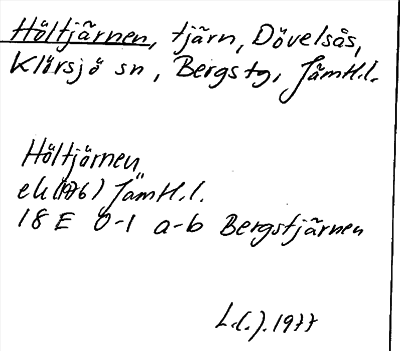 Höltjärnen, tjärn, Dövelsås,
Klövsjö sn, Bergs tg, Jämtl.l.
Höltjärnen
ek (1976) Jämtl.l.
18 E 0-1 a-b Bergstjärnen
1977